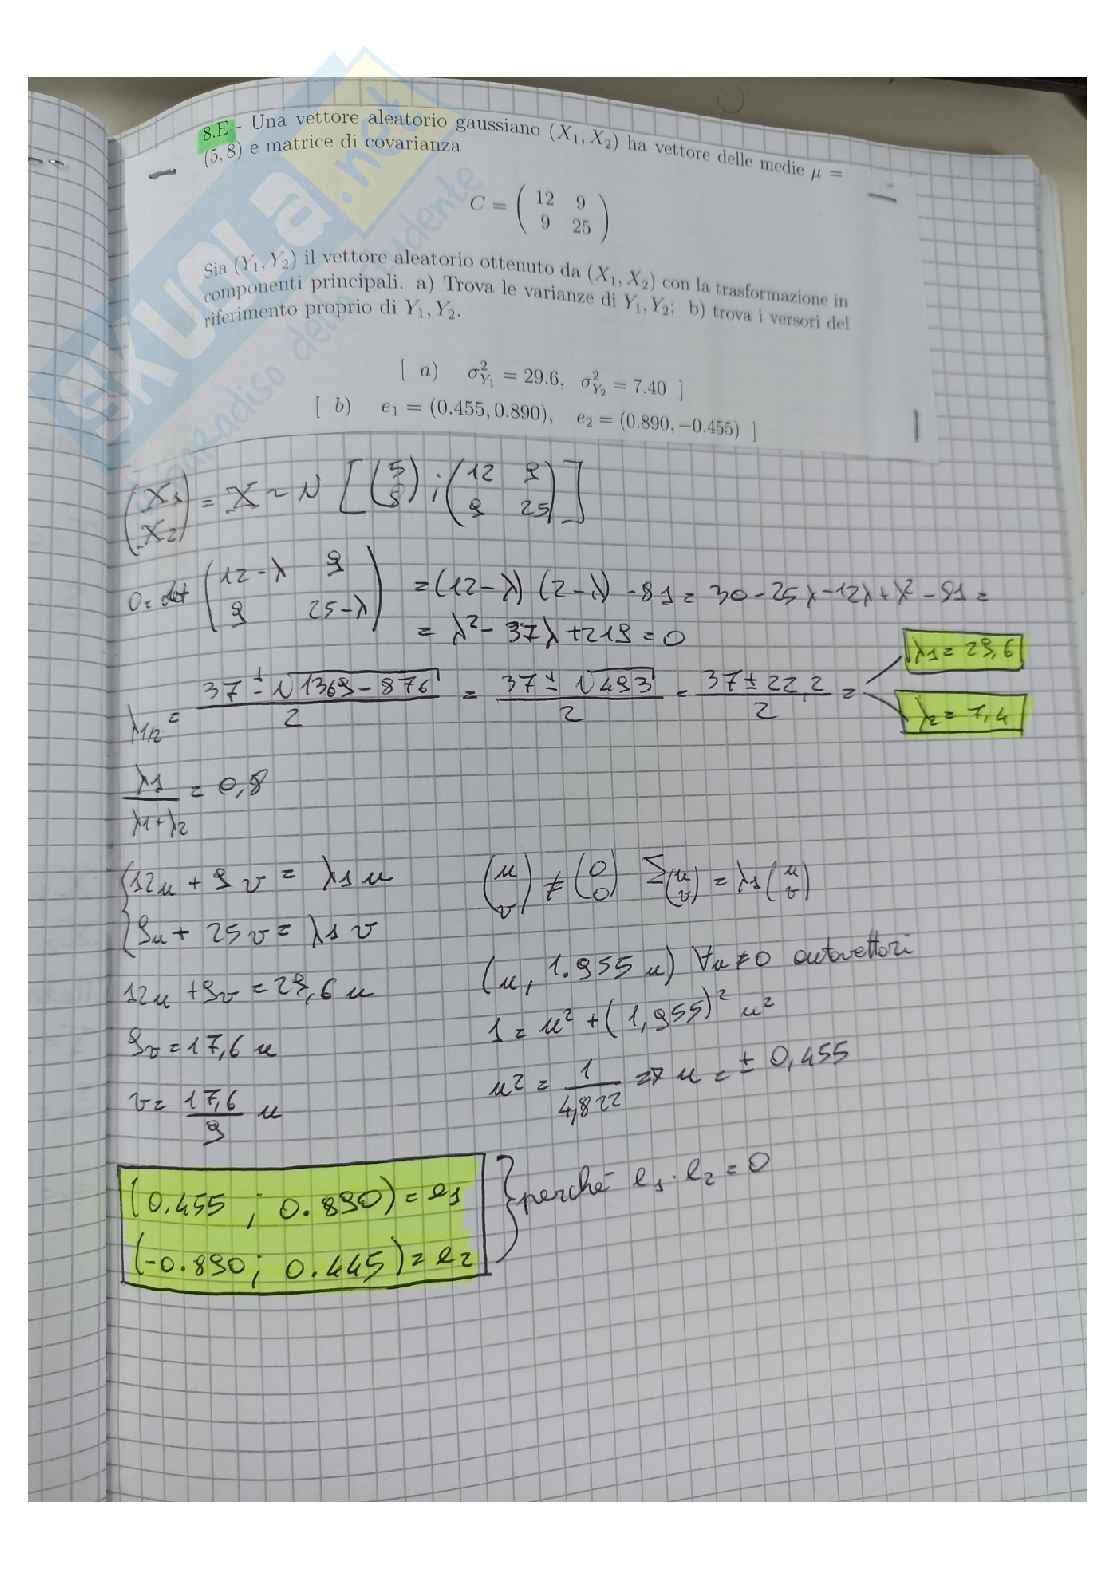 8.E - Una vettore aleatorio gaussiano (X₁, X₂) ha vettore delle medie μ =
(5, 8) e matrice di covarianza
C = ( 12 9
9 25 )
Sia (Y₁, Y₂) il vettore aleatorio ottenuto da (X₁, X₂) con la trasformazione in
componenti principali. a) Trova le varianze di Y₁, Y₂; b) trova i versori del
riferimento proprio di Y₁, Y₂.
[ a) σ²_Y₁ = 29.6, σ²_Y₂ = 7.40 ]
[ b) e₁ = (0.455, 0.890), e₂ = (0.890, −0.455) ]
(X₁ X₂) = X ~ N [(5 8) ; (12 9 9 25)]
0 = det (12-λ 9 9 25-λ) = (12-λ) (2-λ) - 81 = 30 - 25λ - 12λ + λ² - 81 =
= λ² - 37λ + 219 = 0
λ₁/₂ = 37 ± √1369 - 876 / 2 = 37 ± √493 / 2 = 37 ± 22,2 / 2 =
λ₁ = 29,6
λ₂ = 7,4
λ₁ / λ₁+λ₂ = 0,8
{ 12u + 9v = λ₁ u
9u + 25v = λ₁ v
(u v) ≠ (0 0) Σ(u v) = λ₁(u v)
12u + 9v = 29,6 u
(u, 1.955 u) ∀u≠0 autovettori
9v = 17,6 u
1 = u² + (1,955)² u²
v = 17,6 / 9 u
u² = 1 / 4,822 => u = ± 0,455
(0.455 ; 0.890) = e₁
(-0.890 ; 0.445) = e₂
} perché e₁ · e₂ = 0
SKUOLA.net
il paradiso dello studente